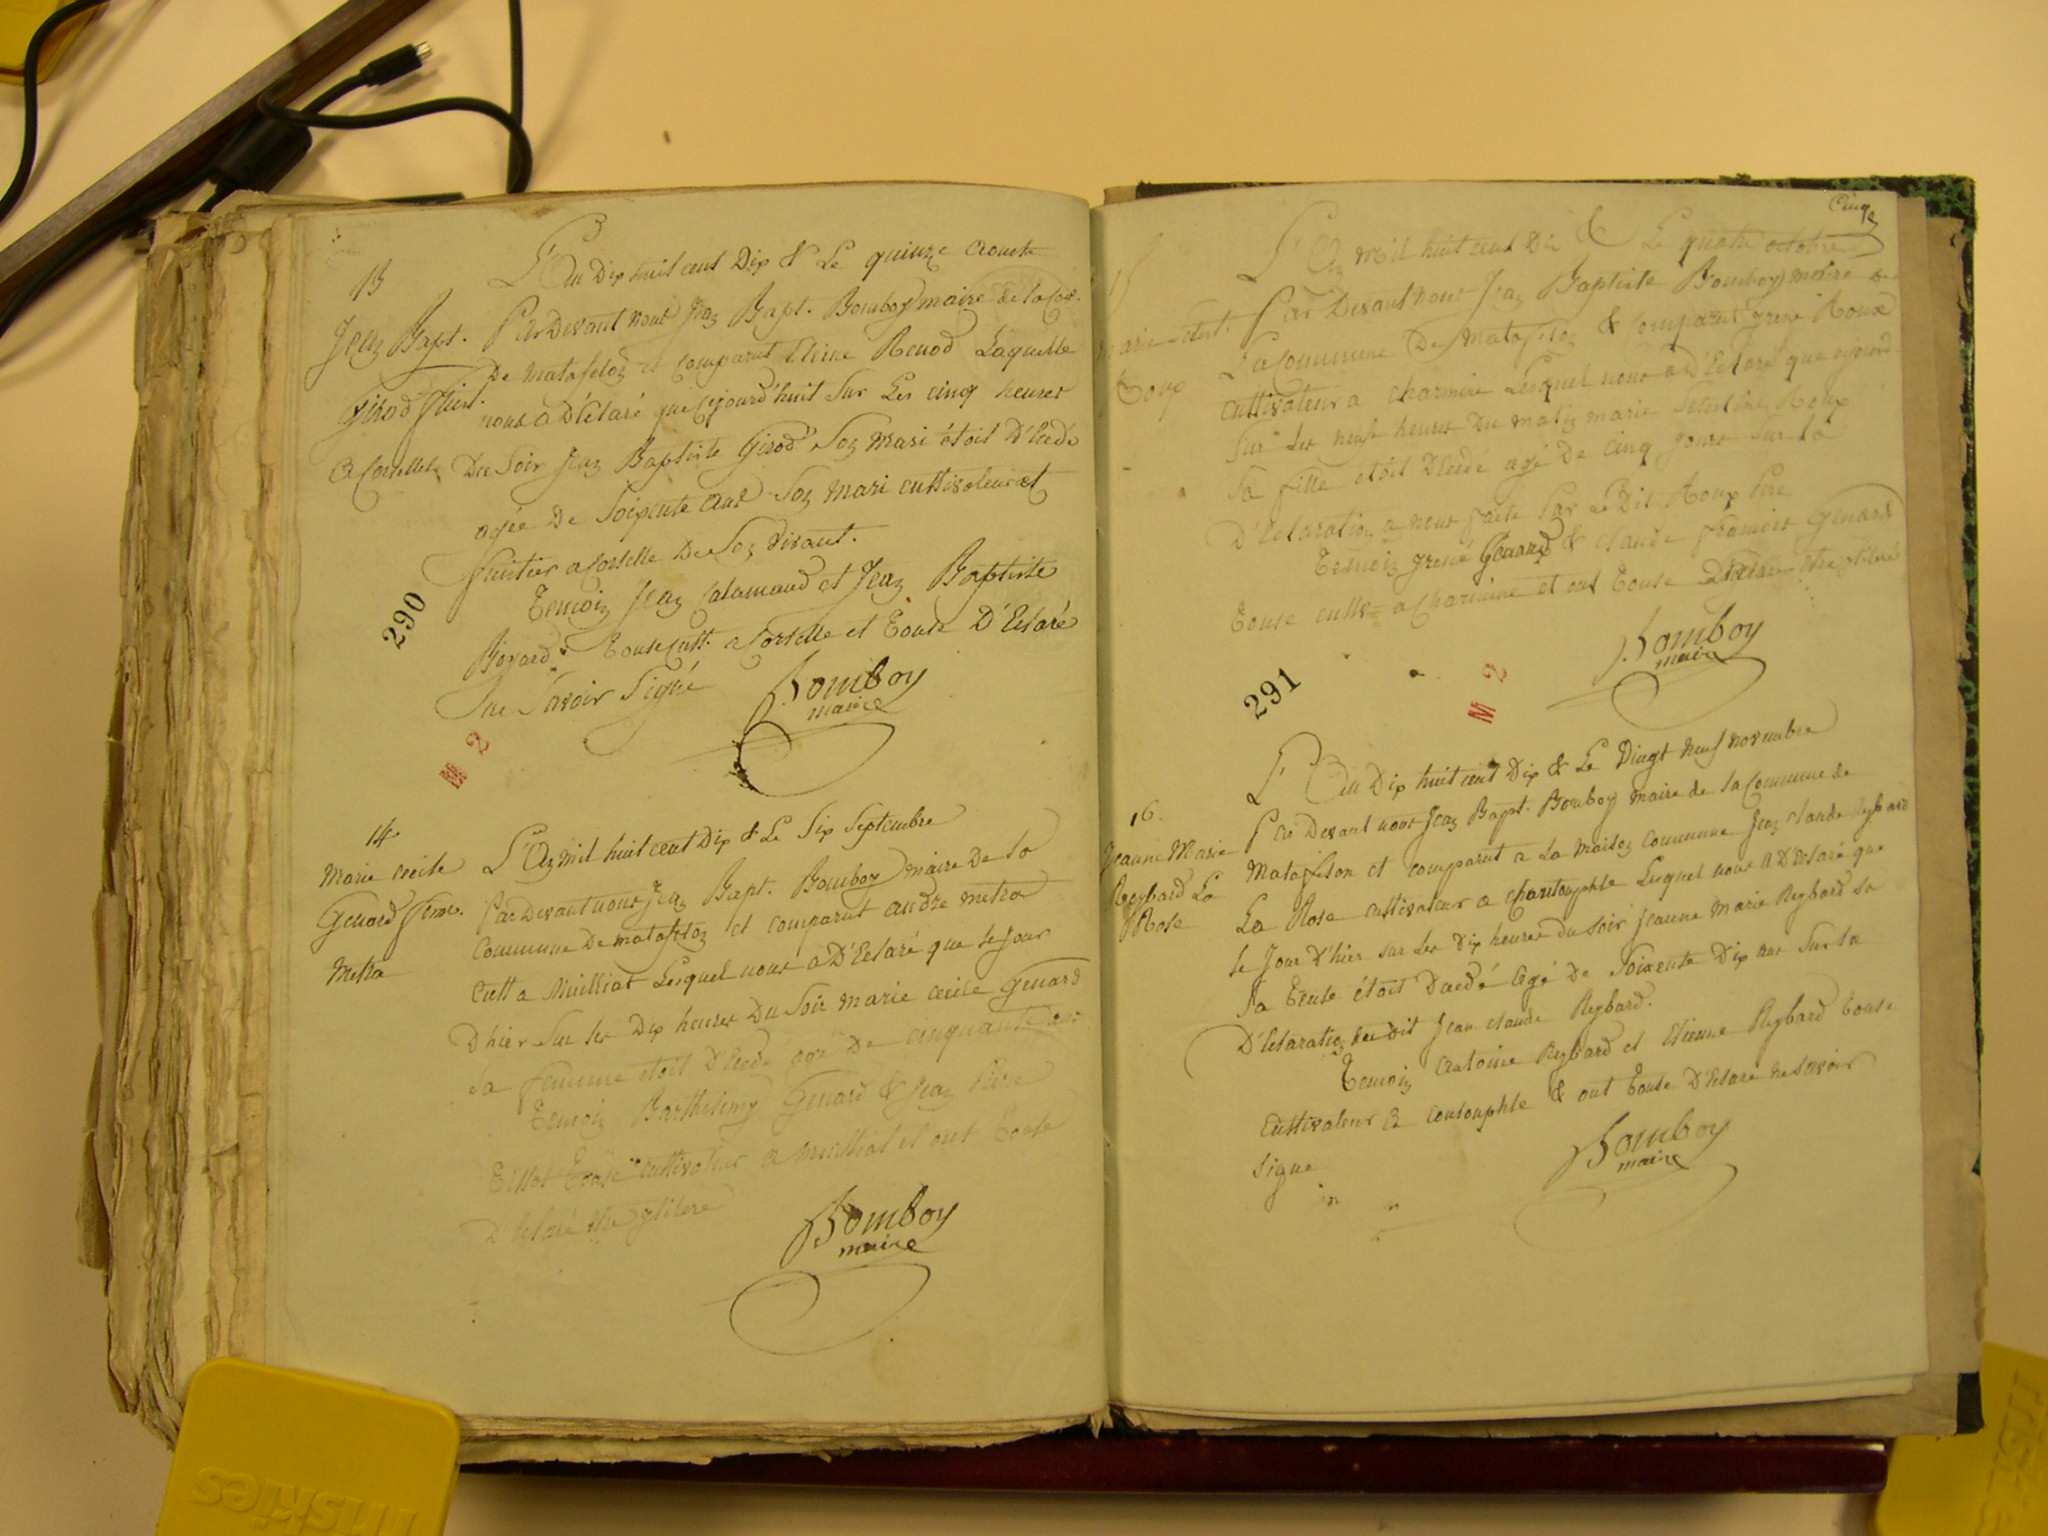 13
Jean Bapt.
Girod fruit.
a Corcelle
L'An Dix huit cent Dix & Le quinze Aoust
Par Devant nous Jean Bapt. Bomboy maire de la Com.
De matafelon et comparut Renod Laquelle
nous a D'Eclaré que cejourd'huit Sur Les cinq heures
Du Soir Jean Baptiste Girod Son Mari étoit D'Ecedé
agée De Soixente Ans Son Mari cultivateur et
fruitier a Corcelle De Son vivant.
Temoin Jean et Jean Baptiste
Touse Cult. a Corcelle et Touse D'Eclaré
ne Savoir Signé
Bomboy
maire
290
M 2
14
Marie cecile
Genard feme.
Metra
L'An mil huit cent Dix & Le Six Septembre
Par Devant nous Jean Bapt. Bomboy maire De la
Commune De matafelon et comparut andre metra
Cult a Mulliat Lesquel nous a D'Eclaré que le Jour
D'hier Sur les Dix heures Du Soir marie cecile Genard
Sa femme etoit D'Ecedé De cinquante ans
Temoin Barthelemy Genard & Jean
Touse cultivateur a Mulliat et ont Touse
D'Eclaré
Bomboy
maire
Cinq
15
marie
Roux
L'An Mil huit cent Dix & Le quatre octobre
Par Devant nous Jean Baptiste Bomboy maire de
La Commune De Matafelon & Comparut Roux
cultivateur a charmine Lesquel nous a D'Eclaré que
Sur Les neuf heures Du matin marie Roux
Sa fille etoit D'Ecedé agé De cinq Jours Sur la
D'Eclaration a nous faite Par Le Dit Roux Pere
Temoin Genard & claude francois Genard
Touse cult a Charmine et ont Touse
Bomboy
maire
291
M 2
16.
Jeanne Marie
Reybard La
Rose
L'An Dix huit cent Dix & Le Vingt neuf novembre
Par Devant nous Jean Bapt. Bomboy maire de La Commune de
Matafelon et comparut a La Maison Commune Jean claude Reybard
La Rose cultivateur a Lequel nous a D'Eclaré que
le Jour D'hier sur Les Dix heures Du Soir Jeanne Marie Reybard Sa
Sa étoit Décedé Agé De Soixente Dix ans Sur la
D'Eclaration du Dit Jean claude Reybard.
Temoin Antoine Reybard et Etienne Reybard touse
cultivateur a & ont Touse D'Eclaré ne Savoir
Signe
Bomboy
maire
friskies